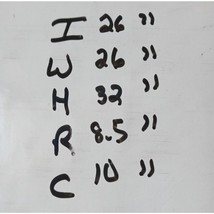 I 26 "
W 26 "
H 32 "
R 8.5 "
C 10 "